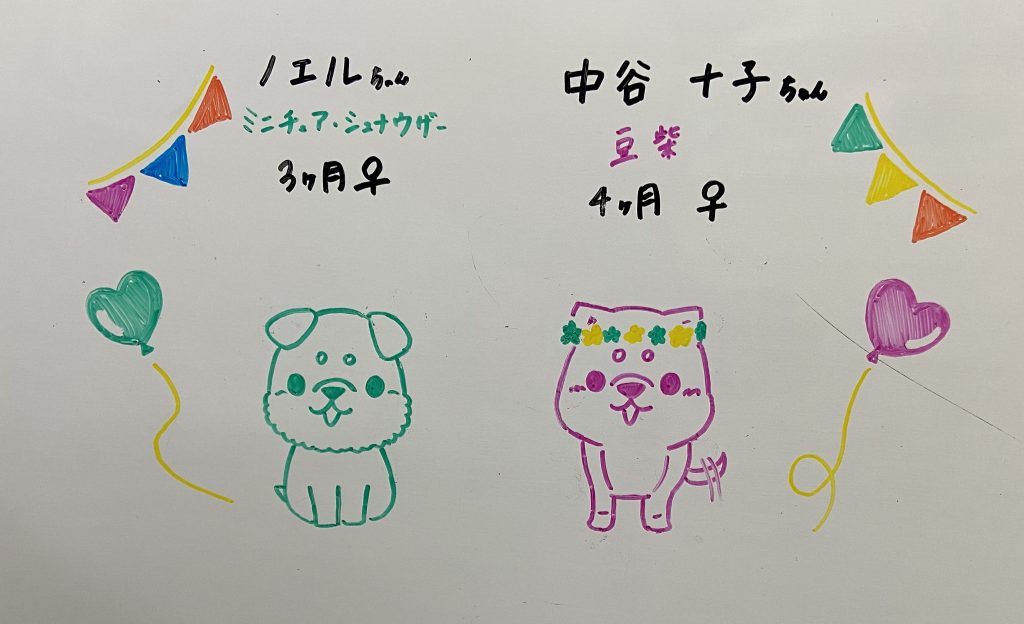 ノエルちゃん
ミニチュア・シュナウザー
3ヶ月♀
中谷 十子ちゃん
豆柴
4ヶ月 ♀